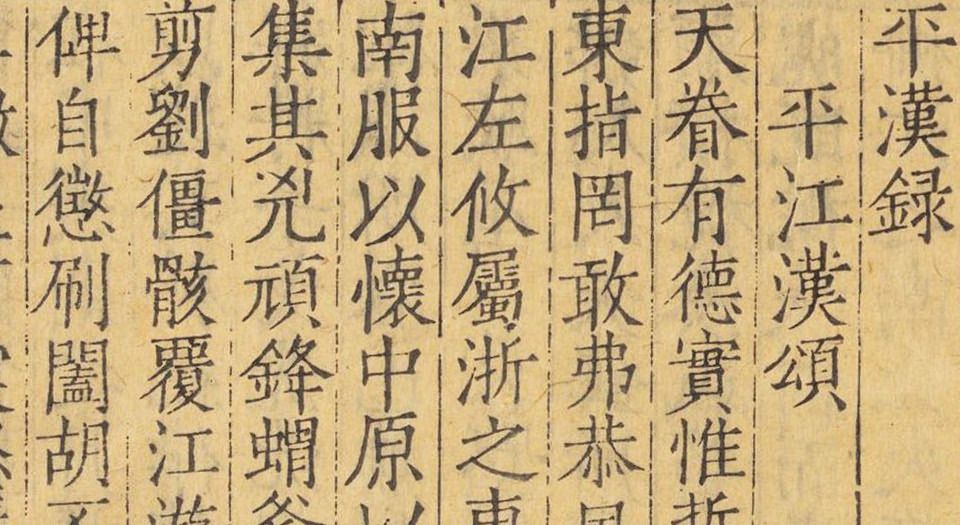 平漢録
平江漢頌
天眷有德實惟
東指罔敢弗恭
江左攸屬浙之東
南服以懷中原以
集其兇頑鋒蝟
剪劉僵骸覆江
俾自懲刷闔胡